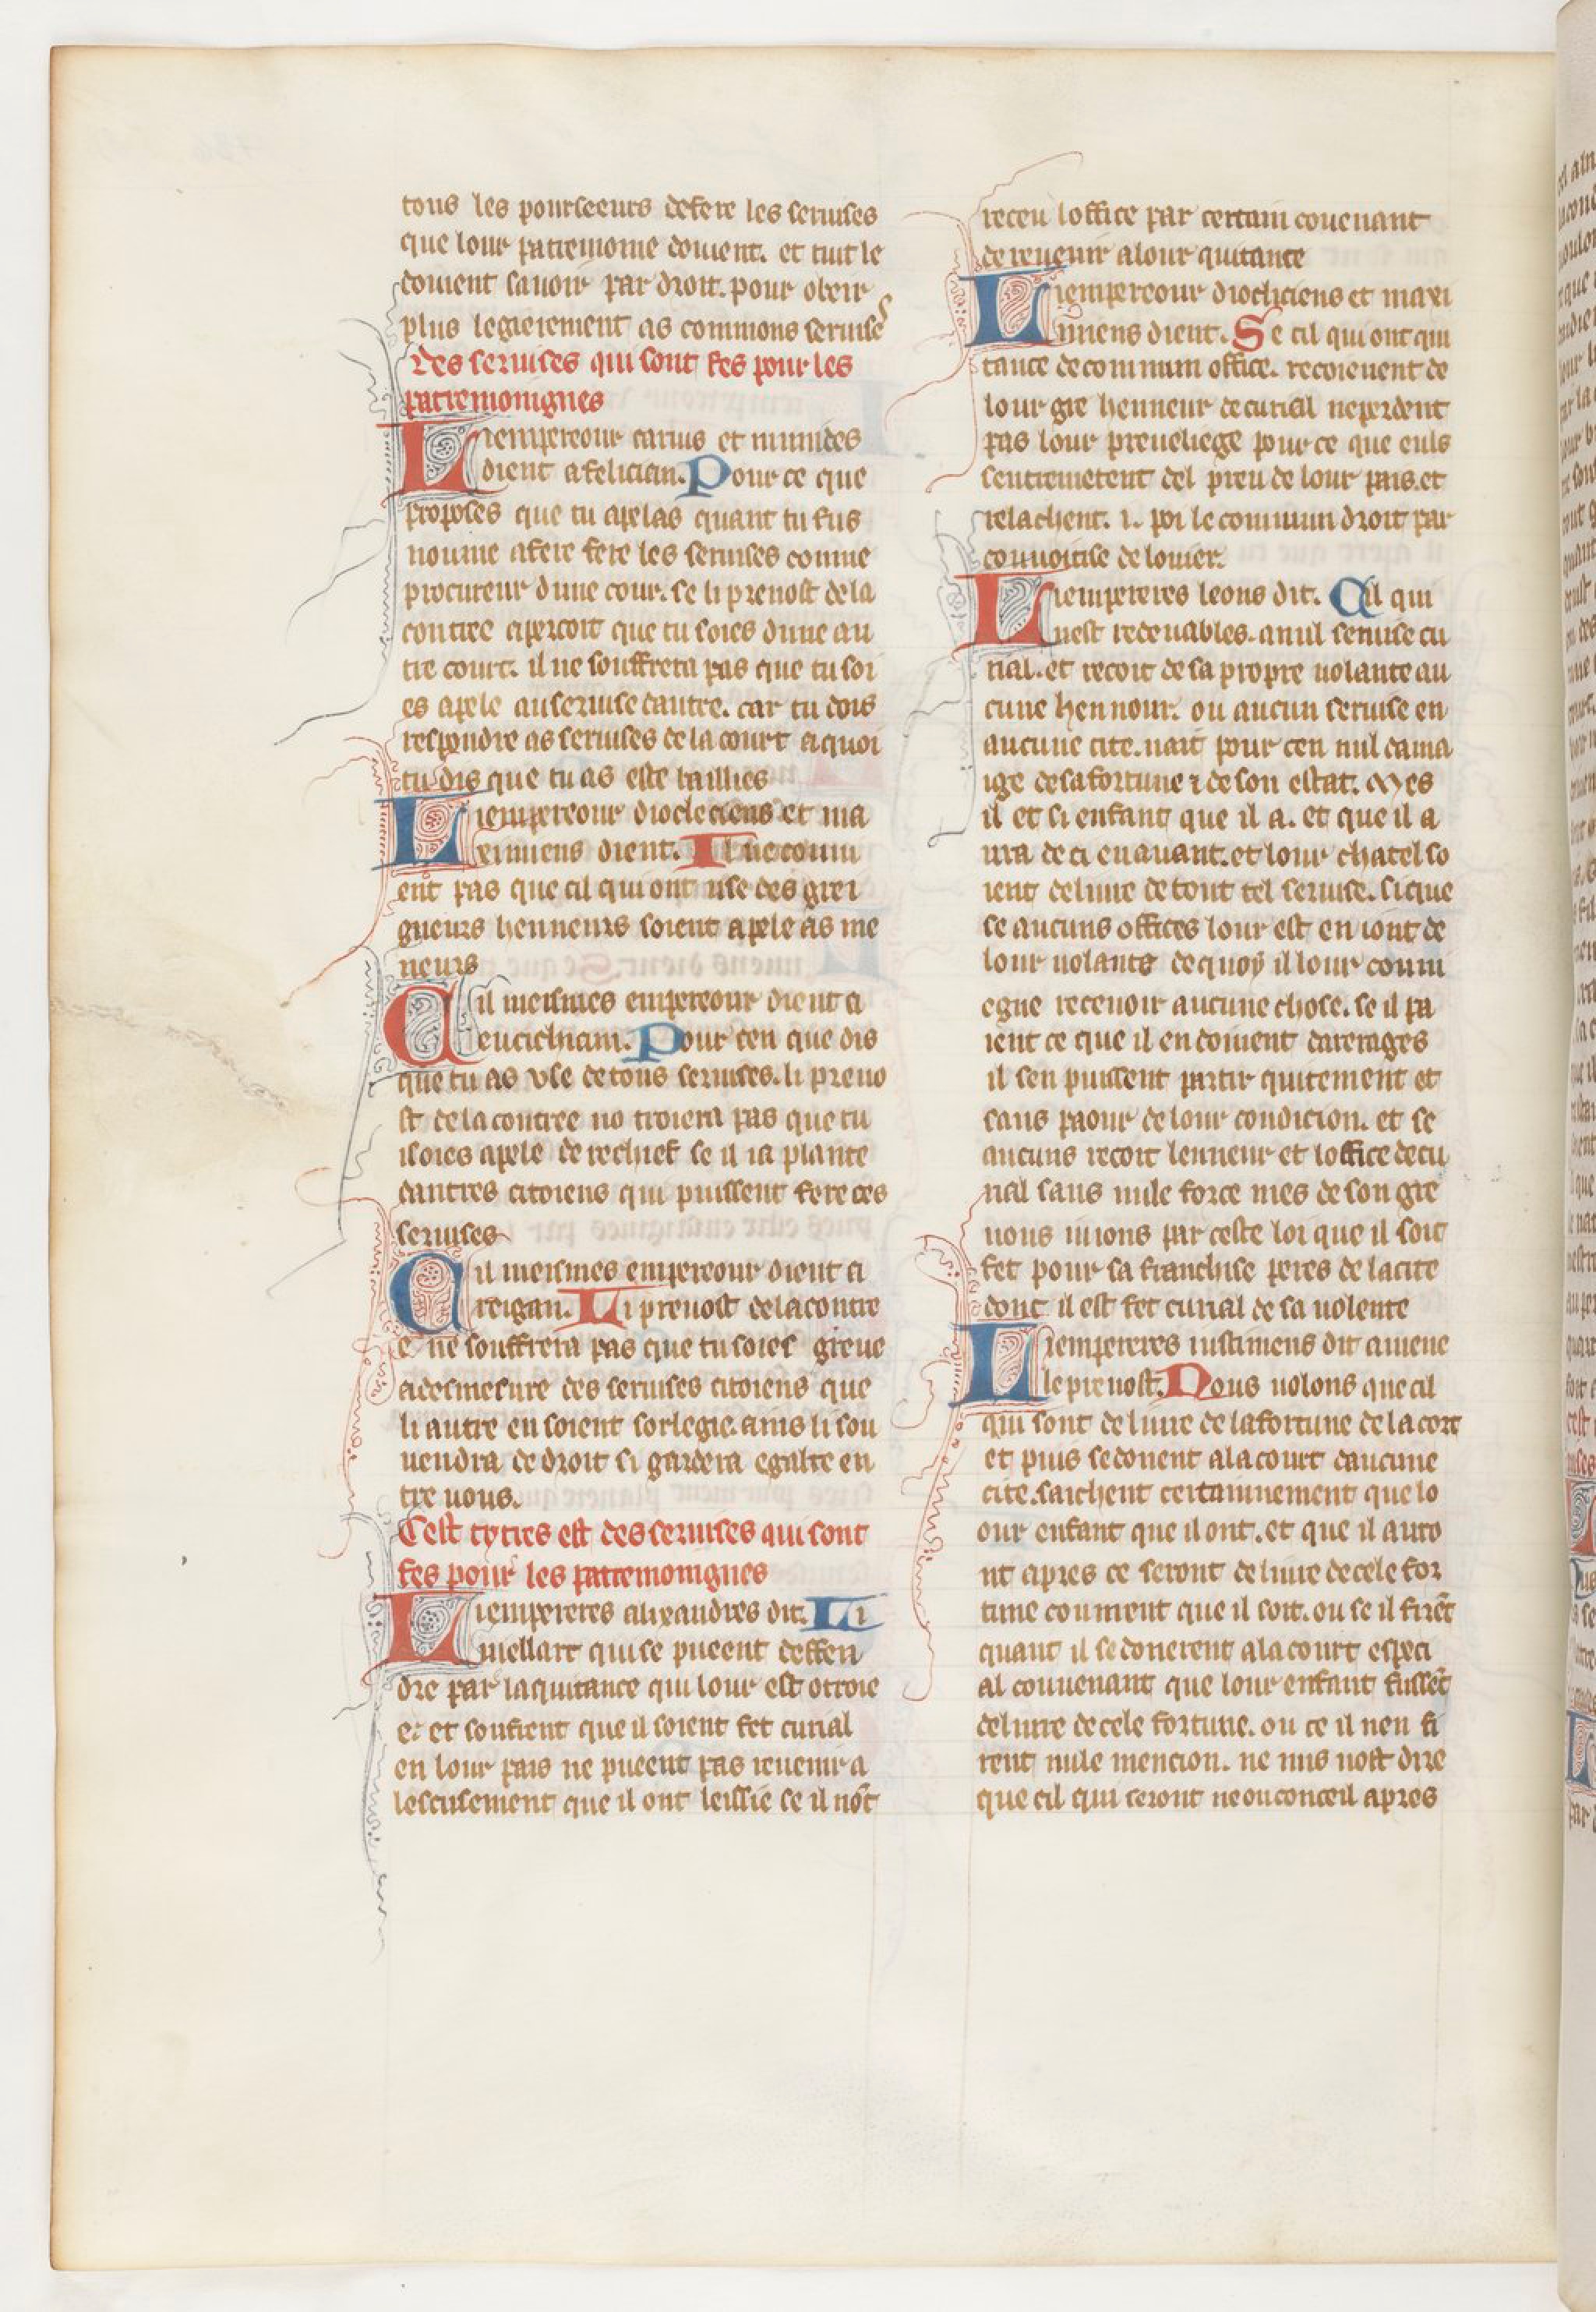 tous les pourseeurs defere les seruises
que lour patremoine doiuent. et tuit le
doiuent sauoir par droit. pour obeir
plus legierement as commons seruises
Des seruises qui sont fes pour les
patremoignes
Li empereour carius et numides
dient a felician. Pour ce que
proposes que tu apelas quant tu fus
noume a fere fere les seruises comme
procureur dune cour. se li preuost de la
contree apercoit que tu soies dune au
tre court. il ne souffrera pas que tu soi
es apele au seruise dautre. car tu dois
respondre as seruises de la court a quoi
tu dis que tu as este bailliés
Li empereour diocleciens et ma
ximiens dient. Il ne couui
ent pas que cil qui ont use des grei
gneurs henneurs soient apele as me
neurs
Cil meismes empereour dient a
eucichiam. Pour cen que dis
que tu as vse de tous seruises. li preuo
st de la contree no troiera pas que tu
soies apele de rechief se il ia plante
dautres citoiens qui puissent fere ces
seruises
Cil meismes empereour dient a
reigan. Li preuost de la contre
e ne souffrera pas que tu soies greue
a desmesure des seruises citoiens que
li autre en soient sorlegie. ains li sou
uendra de droit si gardera egalte en
tre uous.
Cest tytres est des seruises qui sont
fes pour les patremoignes
Li empereres alixandres dit. Li
uiellart qui se pueent deffen
dre par la quitance qui lour est ottroie
e. et seufrent que il soient fet curial
en lour pais ne pueent pas reuenir a
lescusement que il ont leissie se il nont
receu loffice par certain couenant
de reuenir a lour quitance
Li empereour diocliciens et maxi
miens dient. Se cil qui ont qui
tance de commun office. recoieuent de
lour gre henneur de curial ne perdent
pas lour preueliege pour ce que euls
sentremetent del preu de lour pais. et
relachent. i. poi le commun droit par
conuoitise de louier.
Li empereres leons dit. Cil qui
nest redeuables. a nul seruise cu
rial. et recoit de sa propre uolante au
cune hennour. ou aucun seruise en
aucune cite. nait pour cen nul dama
ige de sa fortune et de son estat. Mes
il et si enfant que il a. et que il a
ura de ci en auant. et lour chatel so
ient deliure de tout tel seruise. si que
se aucuns offices lour est en iont de
lour uolante de quoy il lour couui
egne receuoir aucune chose. se il pa
ient ce que il en doiuent darerages
il sen puissent partir quitement et
sans paour de lour condicion. et se
aucuns recoit lenneur et loffice de cu
rial sans nule force mes de son gre
nous iuions par ceste loi que il soit
fet pour sa franchise peres de la cite
donc il est fet curial de sa uolente
Li empereres iustiniens dit a mene
le preuost. Nous uolons que cil
qui sont deliure de la fortune de la cort
et puis se donent a la court daucune
cite. saichent certainnement que lo
our enfant que il ont. et que il auro
nt apres ce seront deliure de cele for
tune coument que il soit. ou se il firent
quant il se donerent a la court especi
al couuenant que lour enfant fussent
deliure de cele fortune. ou ce il nen fi
rent nule mencion. ne nus nost dire
que cil qui seront ne ou conceil apres